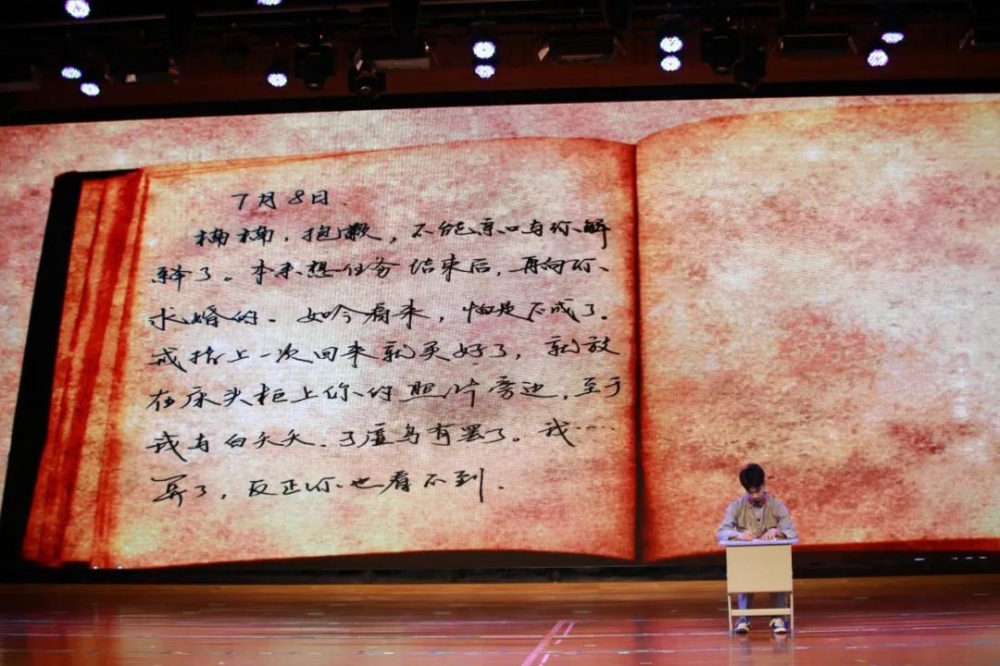 7月8日.
楠楠，抱歉，不能亲口与你解
释了。本来想任务结束后，再向你
求婚的。如今看来，怕是不成了。
戒指上一次回来就买好了，就放
在床头柜上你的照片旁边，至于
我与白，子虚乌有罢了。我……
算了，反正你也看不到.